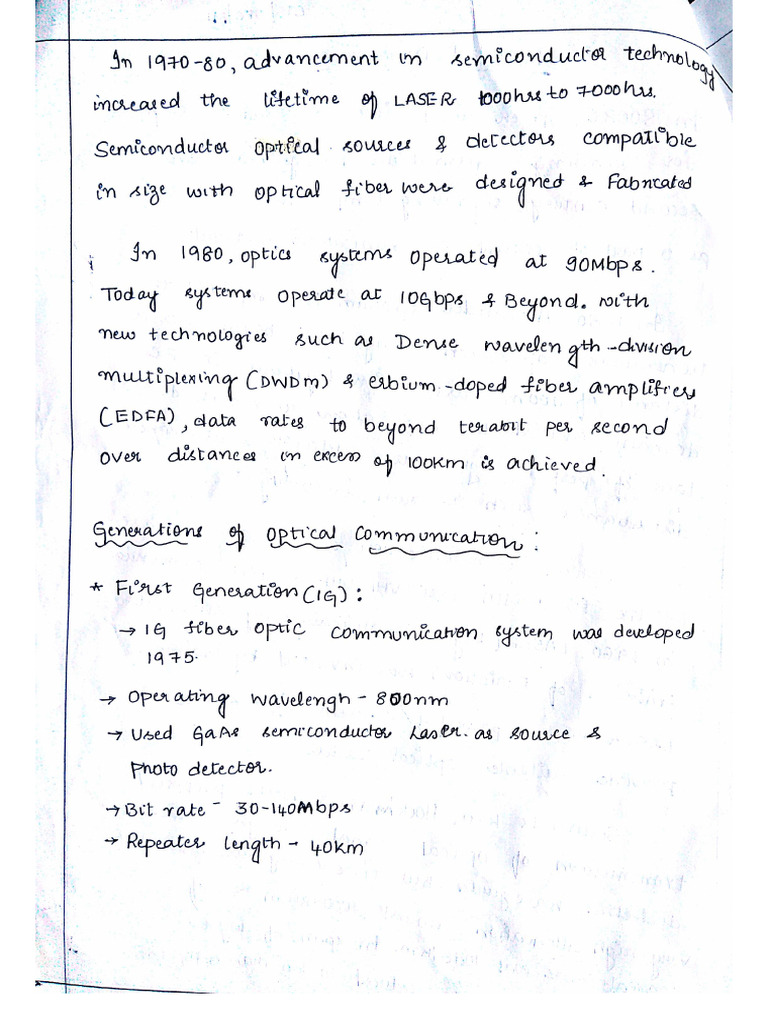 In 1970-80, advancement in semiconductor technology
increased the lifetime of LASER 1000hrs to 7000hrs.
Semiconductor optical sources & detectors compatible
in size with optical fiber were designed & Fabricated
In 1980, optics systems operated at 90Mbps.
Today systems operate at 10Gbps & Beyond. with
new technologies such as Dense wavelength-division
multiplexing (DWDM) & erbium-doped fiber amplifiers
(EDFA), data rates to beyond terabit per second
over distances in excess of 100km is achieved.
Generations of optical communication:
* First Generation (1G):
→ 1G fiber optic communication system was developed
1975.
→ Operating wavelengh - 800nm
→ Used GaAs semiconductor Laser. as source &
photo detector.
→ Bit rate - 30-140Mbps
→ Repeater length - 40km